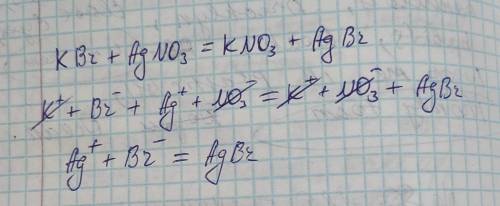 KBr + AgNO₃ = KNO₃ + AgBr
K⁺ + Br⁻ + Ag⁺ + NO₃⁻ = K⁺ + NO₃⁻ + AgBr
Ag⁺ + Br⁻ = AgBr